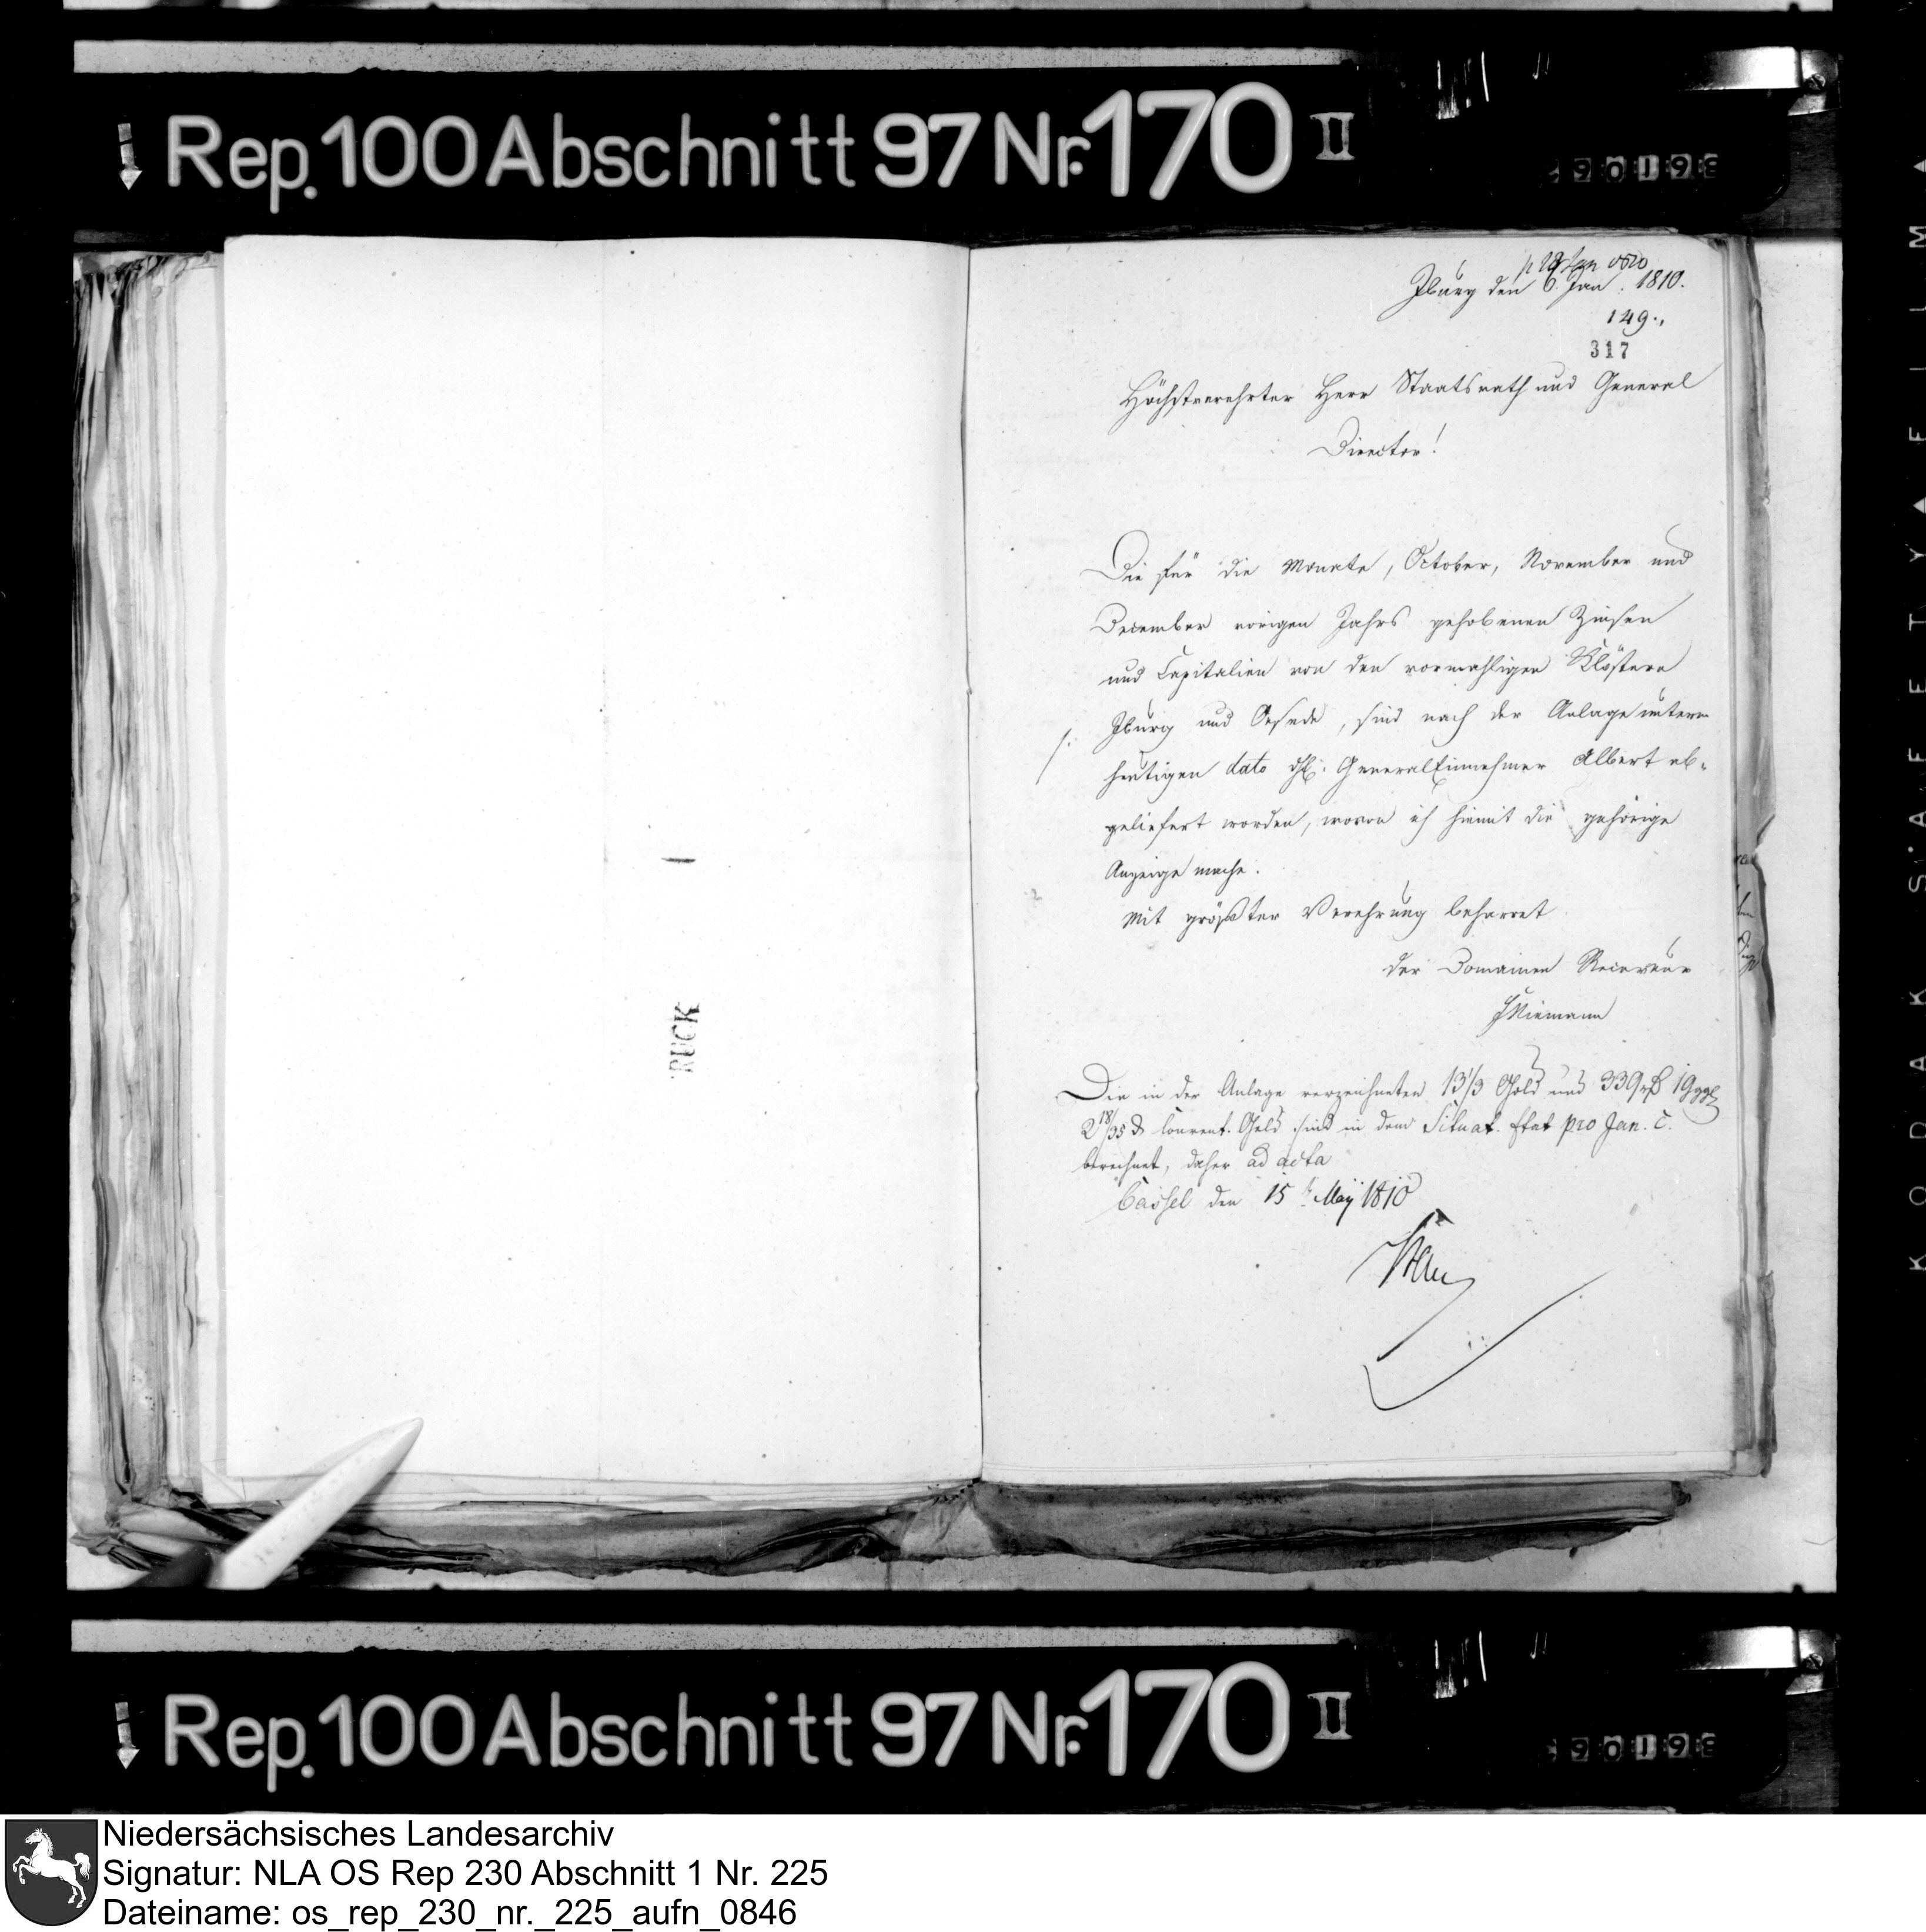 Rep. 100 Abschnitt 97 Nr. 170 II
RUCK
p 18 Jan 1810
Iburg den 6. Jan. 1810.
149.
317
Höchstverehrter Herr Staatsrath und General
Director!
Die für die Monate, October, November und
December vorigen Jahrs gehobenen Zinsen
und Capitalien von den vormahligen Klöstern
Iburg und Oesede, sind nach der Anlage unterm
heutigen dato GeneralEinnehmer Albert ab-
geliefert worden, wovon ich hiemit die gehörige
Anzeige mache.
Mit größter Verehrung beharret
der Domainen Receveur
Niemann
Die in der Anlage verzeichneten 13 1/3 Gold und 339 rh 19 ggl
2 18/35 d Courent. Geld sind in dem Situat. Etat pro Jan. c.
berechnet, daher ad acta
Cassel den 15t May 1810
Rep. 100 Abschnitt 97 Nr. 170 II
KODAK SAFETY FILM
Niedersächsisches Landesarchiv
Signatur: NLA OS Rep 230 Abschnitt 1 Nr. 225
Dateiname: os_rep_230_nr._225_aufn_0846